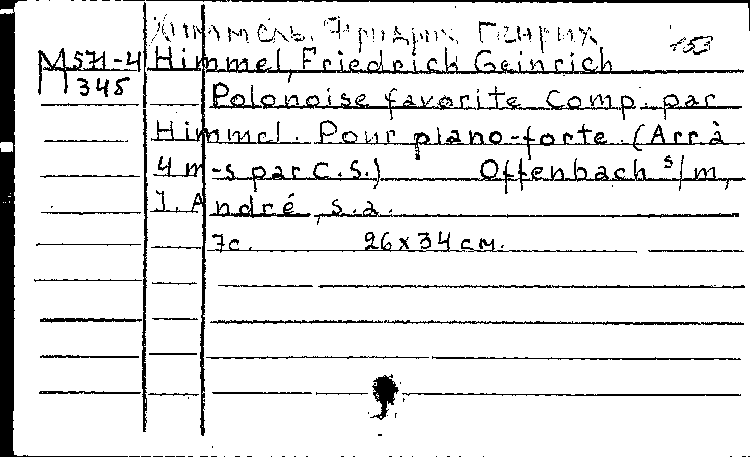 Химмель, Фридрих Генрих
153
М 571-4 Himmel, Friedrich Geinrich
345
Polonoise favorite Comp. par
Himmel. Pour piano-forte. (Arr. à
4 m-s par C.S.) Offenbach s/m,
J. André, s.a.
7c. 26 x 34 см.